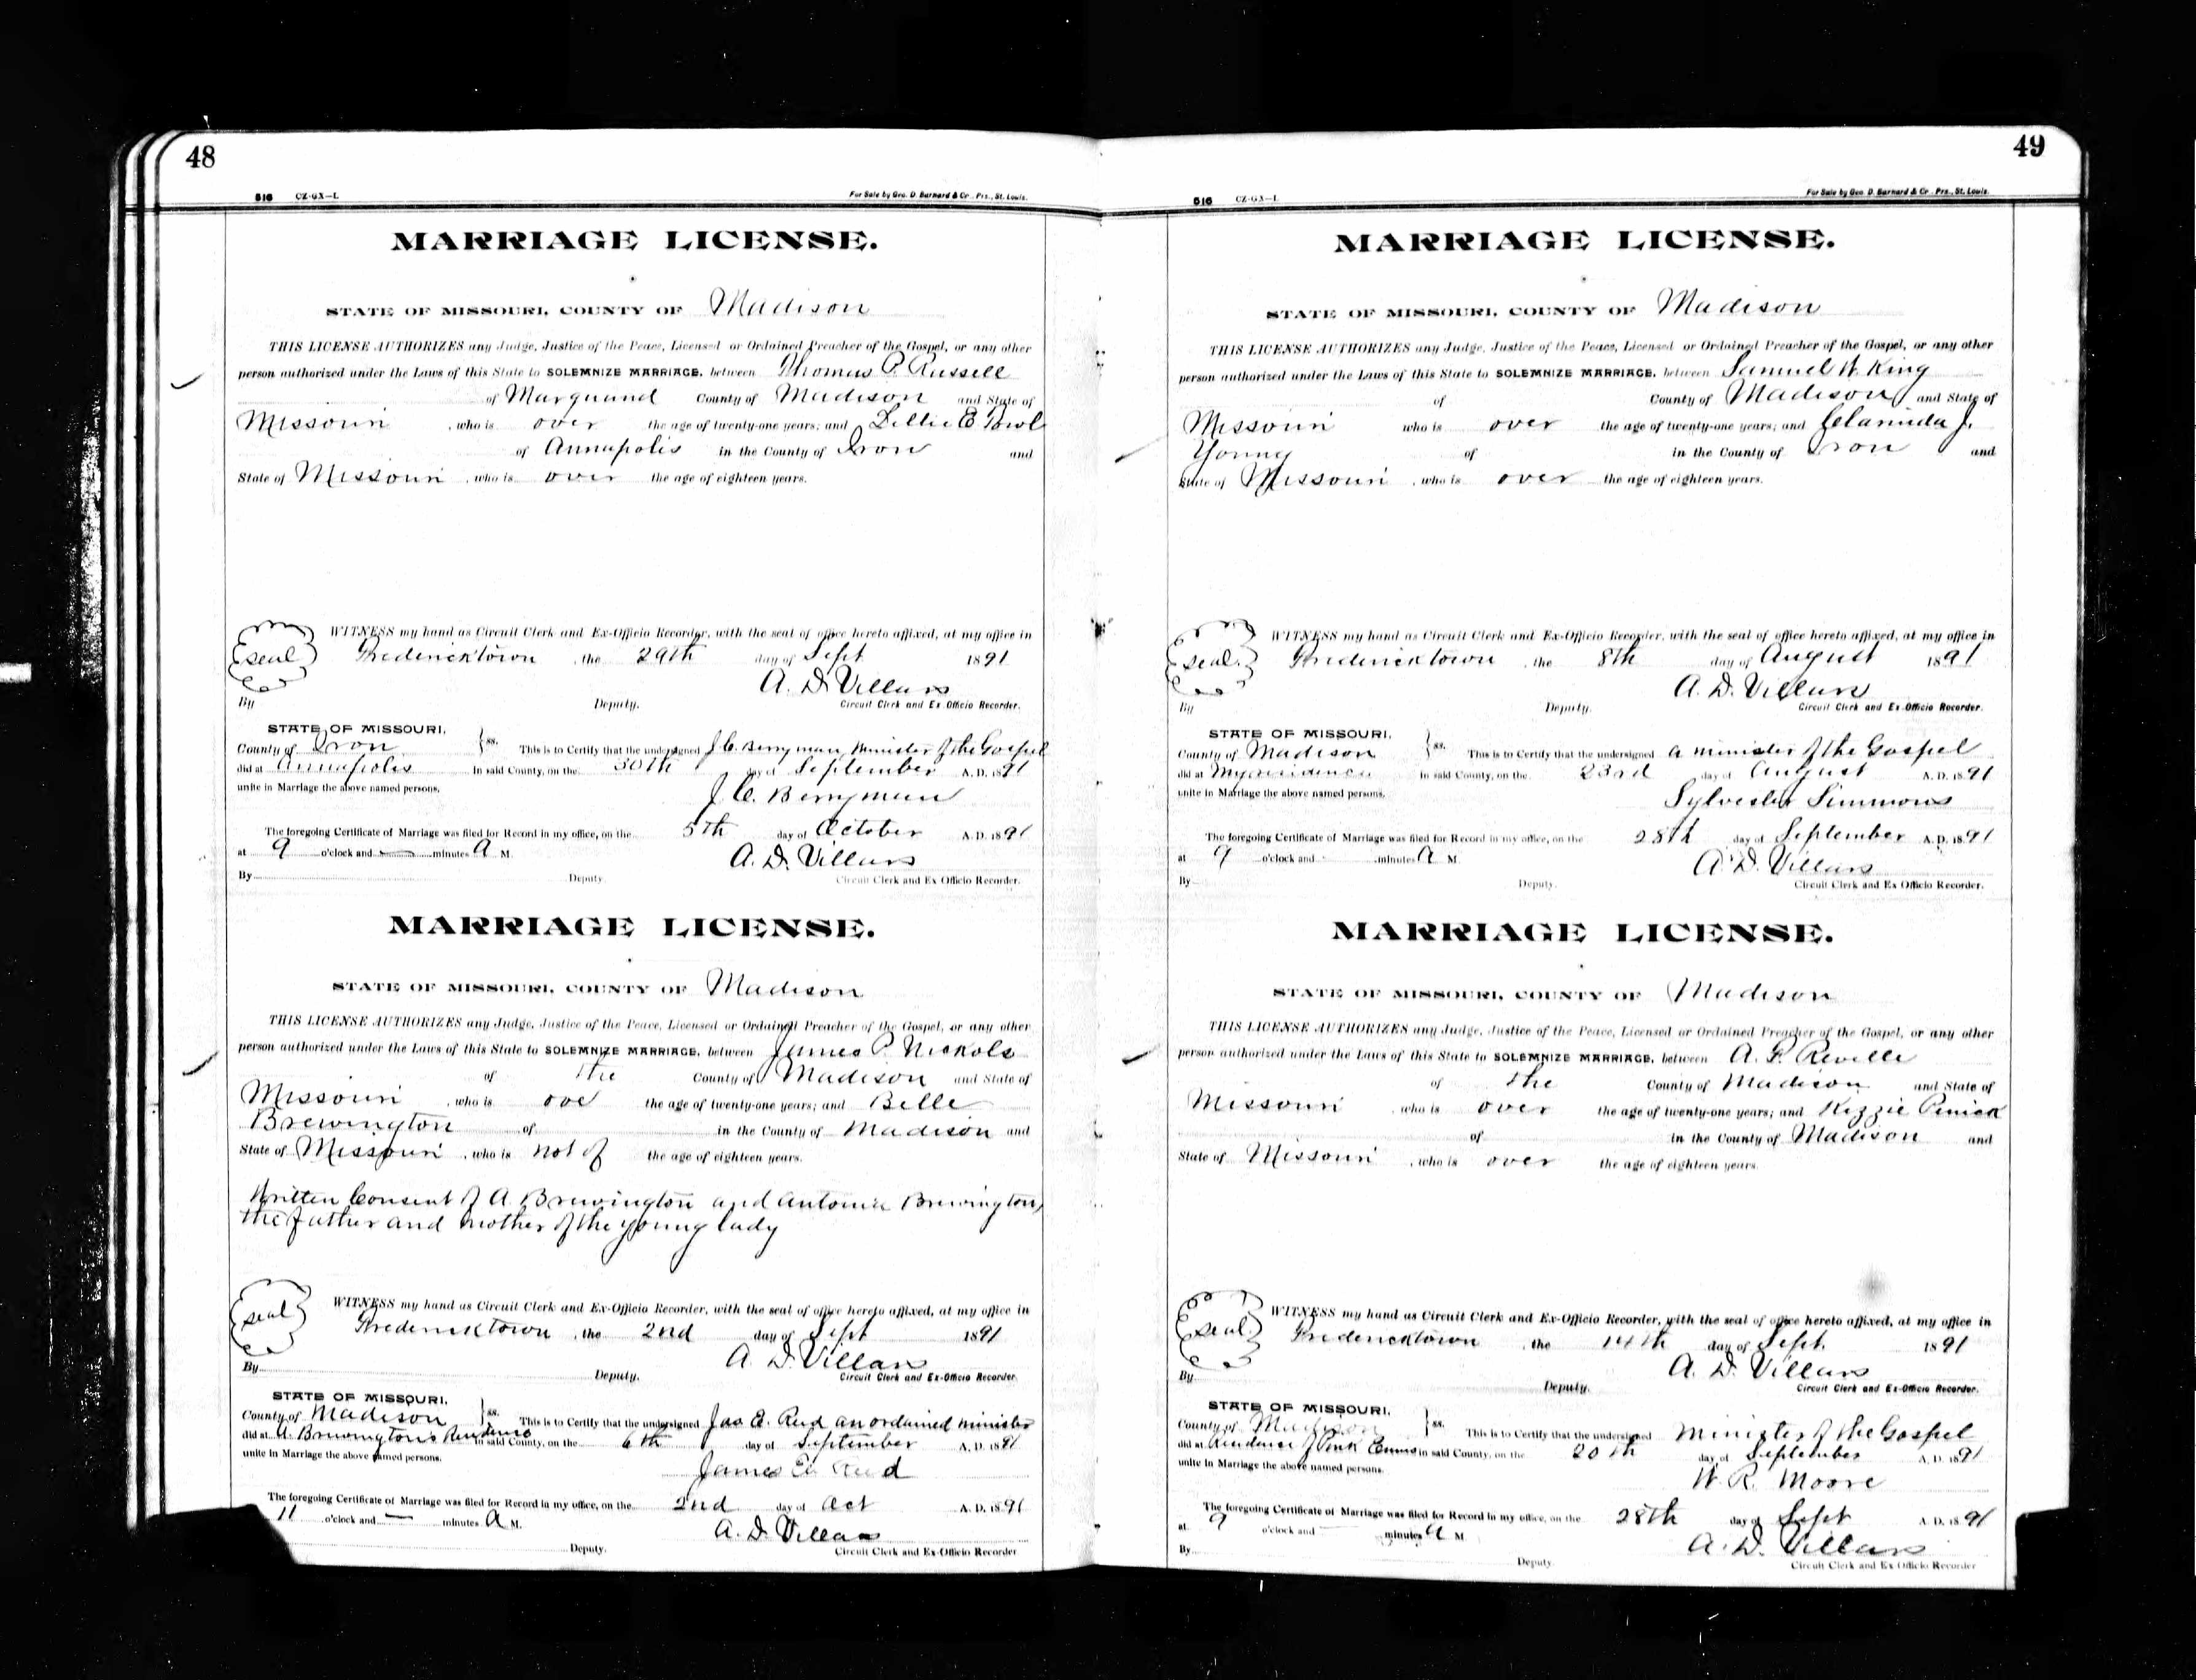 48
516 CZ-GX—L For Sale by Geo. D. Barnard & Co. Prs., St. Louis.
MARRIAGE LICENSE.
STATE OF MISSOURI, COUNTY OF Madison
THIS LICENSE AUTHORIZES any Judge, Justice of the Peace, Licensed or Ordained Preacher of the Gospel, or any other
person authorized under the Laws of this State to SOLEMNIZE MARRIAGE, between Thomas P. Russell
of Marquand County of Madison and State of
Missouri, who is over the age of twenty-one years; and Lillie E
of Annapolis in the County of Iron and
State of Missouri, who is over the age of eighteen years.
WITNESS my hand as Circuit Clerk and Ex-Officio Recorder, with the seal of office hereto affixed, at my office in
seal Fredericktown, the 29th day of Sept 1891
A. D. Villars
By Deputy. Circuit Clerk and Ex Officio Recorder.
STATE OF MISSOURI,
County of Iron ss. This is to Certify that the undersigned J. C. Berryman, Minister of the Gospel
did at Annapolis in said County, on the 30th day of September A. D. 1891
unite in Marriage the above named persons.
J. C. Berryman
The foregoing Certificate of Marriage was filed for Record in my office, on the 5th day of October A. D. 1891
at 9 o'clock and — minutes A M.
A. D. Villars
By Deputy. Circuit Clerk and Ex Officio Recorder.
MARRIAGE LICENSE.
STATE OF MISSOURI, COUNTY OF Madison
THIS LICENSE AUTHORIZES any Judge, Justice of the Peace, Licensed or Ordained Preacher of the Gospel, or any other
person authorized under the Laws of this State to SOLEMNIZE MARRIAGE, between James P. Nickols
of the County of Madison and State of
Missouri, who is ove the age of twenty-one years; and Belle
Brewington of in the County of Madison and
State of Missouri, who is not of the age of eighteen years.
Written Consent of A. Brewington and Antonia Brewington,
the father and mother of the young lady
WITNESS my hand as Circuit Clerk and Ex-Officio Recorder, with the seal of office hereto affixed, at my office in
seal Fredericktown, the 2nd day of Sept 1891
A. D. Villars
By Deputy. Circuit Clerk and Ex-Officio Recorder.
STATE OF MISSOURI,
County of Madison ss. This is to Certify that the undersigned Jas E. Reid an ordained minister
did at A. Brewington's Residence in said County, on the 6th day of September A. D. 1891
unite in Marriage the above named persons.
James E. Reid
The foregoing Certificate of Marriage was filed for Record in my office, on the 2nd day of Oct A. D. 1891
11 o'clock and — minutes A M.
A. D. Villars
Deputy. Circuit Clerk and Ex-Officio Recorder
49
516 CZ-GX—L For Sale by Geo. D. Barnard & Co. Prs., St. Louis.
MARRIAGE LICENSE.
STATE OF MISSOURI, COUNTY OF Madison
THIS LICENSE AUTHORIZES any Judge, Justice of the Peace, Licensed or Ordained Preacher of the Gospel, or any other
person authorized under the Laws of this State to SOLEMNIZE MARRIAGE, between Samuel W. King
of County of Madison and State of
Missouri who is over the age of twenty-one years; and Claminda J.
Young of in the County of Iron and
State of Missouri, who is over the age of eighteen years.
WITNESS my hand as Circuit Clerk and Ex-Officio Recorder, with the seal of office hereto affixed, at my office in
seal. Fredericktown, the 8th day of August 1891
A. D. Villars
By Deputy. Circuit Clerk and Ex-Officio Recorder.
STATE OF MISSOURI,
County of Madison ss. This is to Certify that the undersigned a minister of the Gospel
did at My residence in said County, on the 23rd day of August A. D. 1891
unite in Marriage the above named persons.
Sylvester Simmons
The foregoing Certificate of Marriage was filed for Record in my office, on the 28th day of September A. D. 1891
at 9 o'clock and minutes A M.
A. D. Villars
By Deputy. Circuit Clerk and Ex Officio Recorder.
MARRIAGE LICENSE.
STATE OF MISSOURI, COUNTY OF Madison
THIS LICENSE AUTHORIZES any Judge, Justice of the Peace, Licensed or Ordained Preacher of the Gospel, or any other
person authorized under the Laws of this State to SOLEMNIZE MARRIAGE, between A. F. Reville
of the County of Madison and State of
Missouri, who is over the age of twenty-one years; and Kizzie Penick
of in the County of Madison and
State of Missouri, who is over the age of eighteen years.
WITNESS my hand as Circuit Clerk and Ex-Officio Recorder, with the seal of office hereto affixed, at my office in
seal. Fredericktown, the 14th day of Sept. 1891
A. D. Villars
By Deputy. Circuit Clerk and Ex-Officio Recorder.
STATE OF MISSOURI,
County of Madison ss. This is to Certify that the undersigned Minister of the Gospel
did at Residence of Pink in said County, on the 20th day of September A. D. 1891
unite in Marriage the above named persons.
W. R. Moore
The foregoing Certificate of Marriage was filed for Record in my office, on the 28th day of Sept A. D. 1891
at 9 o'clock and minutes A M.
A. D. Villars
By Deputy. Circuit Clerk and Ex Officio Recorder